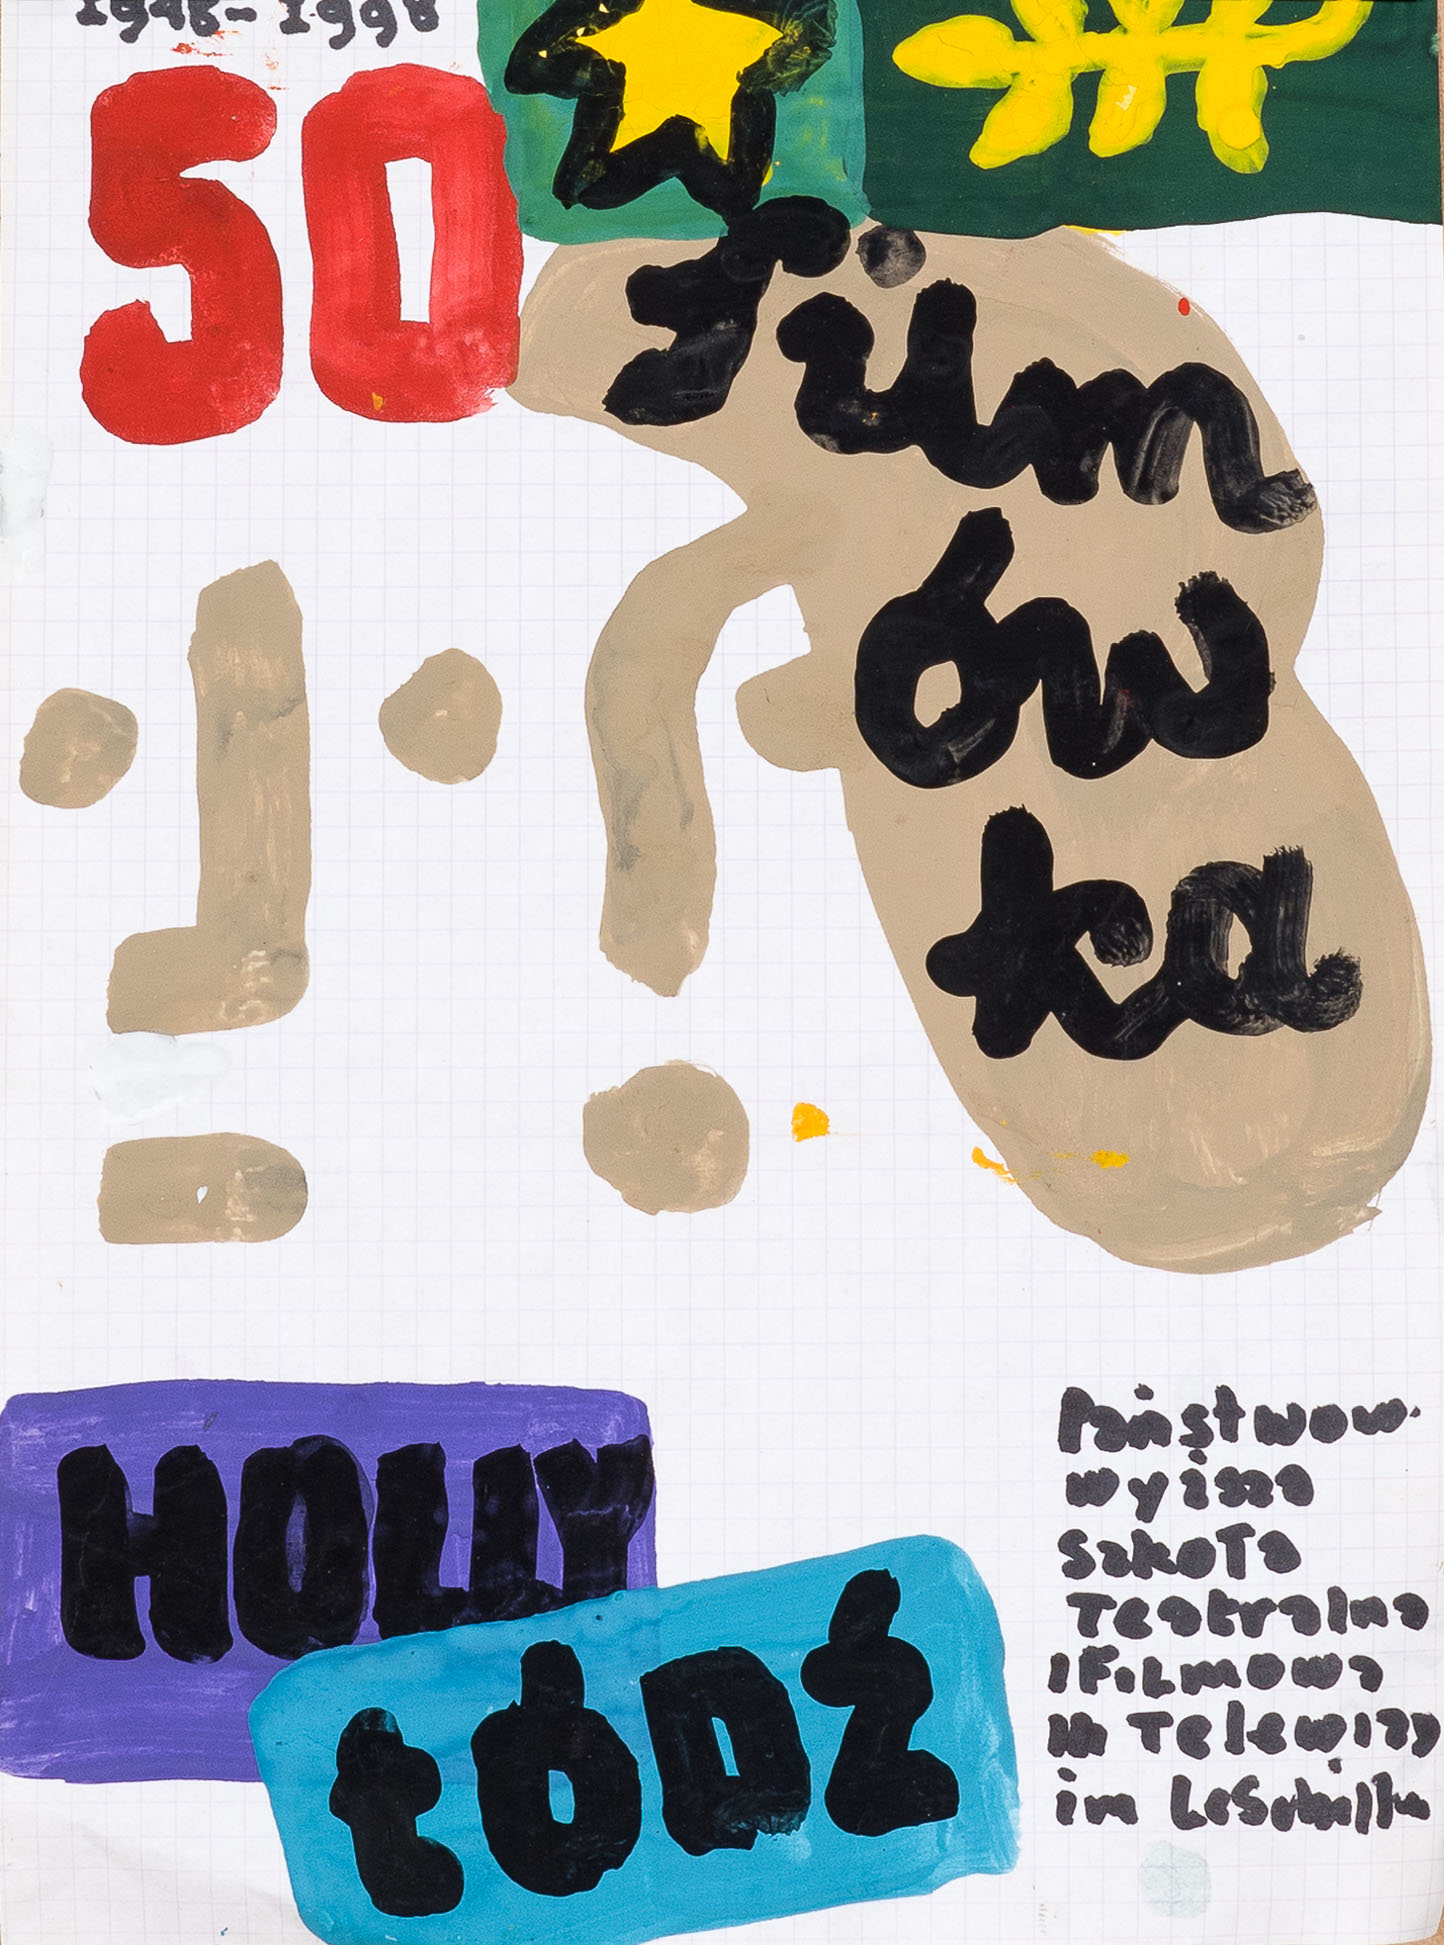 1948-1998
50
film
ów
ka
HOLLY
ŁÓDŹ
Państwow.
wyższa
Szkoła
Teatralna
i FiLmowa
Telewizy
im